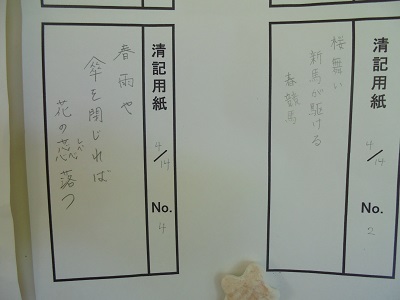 清記用紙 4/14 No. 2
桜舞い
新馬が駆ける
春競馬
清記用紙 4/14 No. 4
春雨や
傘を閉じれば
花の蕊落つ
しべ